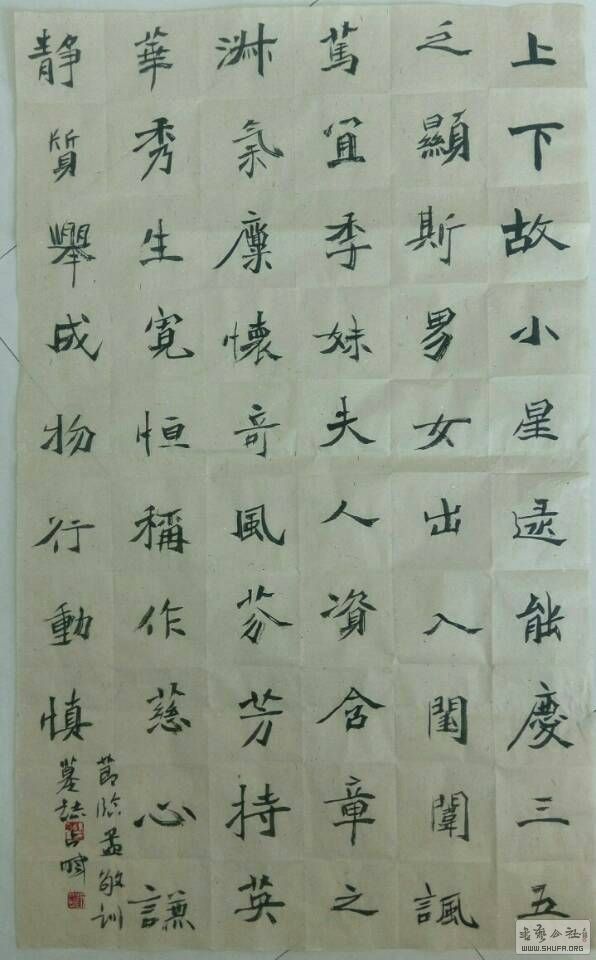 上下故小星逮能慶三五
之顯斯男女出入閨闈諷
篤宜季妹夫人資含章之
淑氣稟懷奇風芬芳持英
華秀生寬恒稱作慈心謙
靜質舉成物行動慎
節臨孟敬訓
墓誌
WWW.SHUFA.ORG